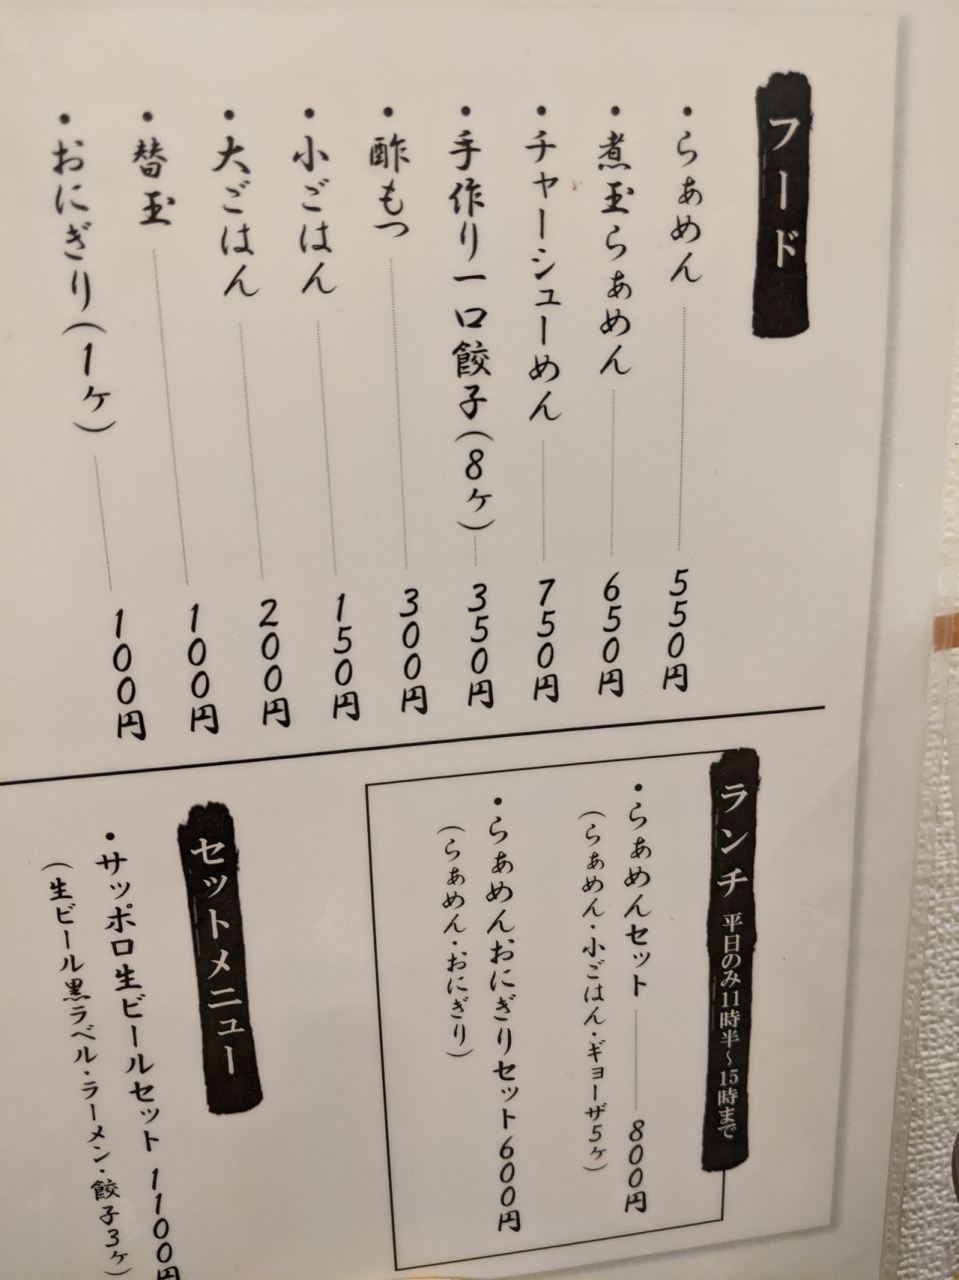 フード
・らぁめん 550円
・煮玉らぁめん 650円
・チャーシューめん 750円
・手作り一口餃子(8ヶ) 350円
・酢もつ 300円
・小ごはん 150円
・大ごはん 200円
・替玉 100円
・おにぎり(1ヶ) 100円
ランチ 平日のみ11時半~15時まで
・らぁめんセット 800円
(らぁめん・小ごはん・ギョーザ5ヶ)
・らぁめんおにぎりセット600円
(らぁめん・おにぎり)
セットメニュー
・サッポロ生ビールセット 1100円
(生ビール黒ラベル・ラーメン・餃子3ヶ)